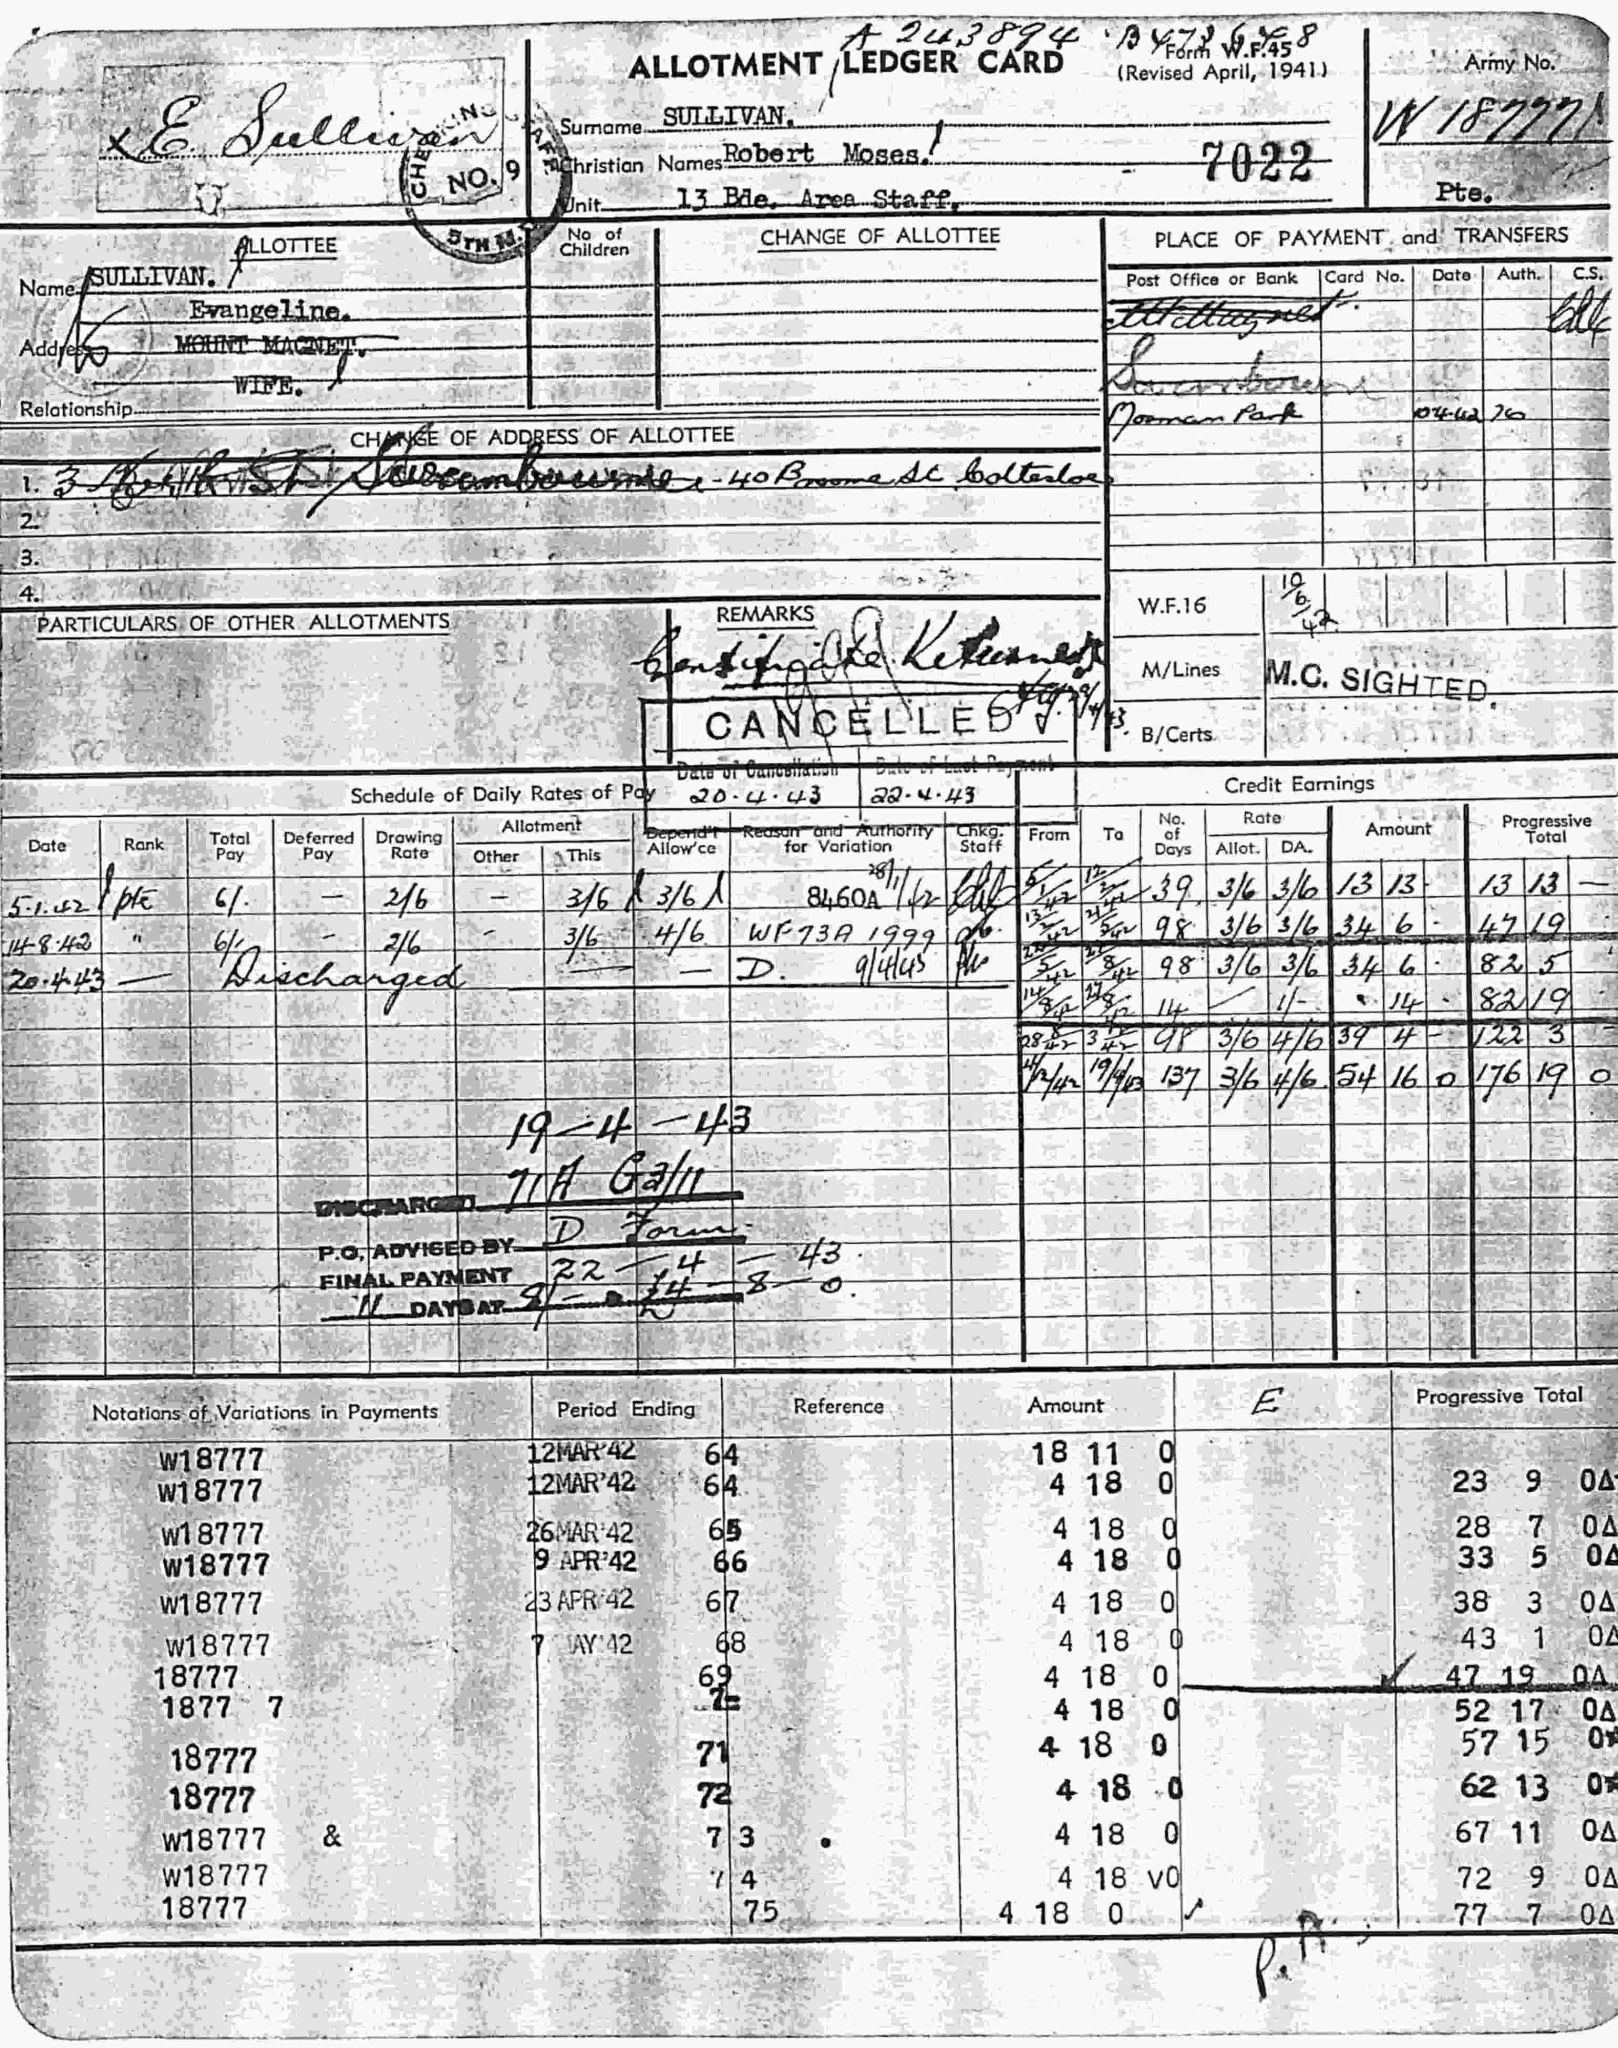 A 243894
Form W.F.45
ALLOTMENT LEDGER CARD
(Revised April, 1941)
Army No.
E Sullivan
CHECKING STAFF
NO. 9
5TH M.D.
Surname SULLIVAN.
Christian Names Robert Moses.
7022
W 18777
Unit 13 Bde. Area Staff.
Pte.
ALLOTTEE
No of Children
CHANGE OF ALLOTTEE
PLACE OF PAYMENT and TRANSFERS
Name SULLIVAN.
Evangeline.
Address MOUNT MAGNET.
WIFE.
Relationship
Post Office or Bank Card No. Date Auth. C.S.
Mt Magnet
Swanbourne
Mosman Park
CHANGE OF ADDRESS OF ALLOTTEE
1. 3 St Swanbourne - 40 Broome St Cottesloe
2.
3.
4.
PARTICULARS OF OTHER ALLOTMENTS
REMARKS
Certificate Returned
W.F.16 10/6/42
M/Lines M.C. SIGHTED.
B/Certs
CANCELLED
Date of Cancellation Date of Last Payment
20.4.43 22.4.43
Schedule of Daily Rates of Pay
Credit Earnings
Date Rank Total Pay Deferred Pay Drawing Rate Allotment Other This Depend't Allow'ce Reason and Authority for Variation Chkg. Staff
From To No. of Days Rate Allot. DA. Amount Progressive Total
5.1.42 pte 6/- - 2/6 - 3/6 3/6 8460A 28/1/42
14-8-42 " 6/- 2/6 - 3/6 4/6 WF73A 1999
20.4.43 — Discharged — — D. 9/4/43
5/1/42 12/2/42 39 3/6 3/6 13 13 - 13 13 —
13/2/42 21/5/42 98 3/6 3/6 34 6 - 47 19
22/5/42 27/8/42 98 3/6 3/6 34 6 - 82 5
14/8/42 27/8/42 14 — 1/- 14 - 82 19
28/8/42 3/12/42 98 3/6 4/6 39 4 - 122 3 -
4/12/42 19/4/43 137 3/6 4/6 54 16 0 176 19 0
19 — 4 — 43
DISCHARGED 71A G3/11
P.O. ADVISED BY D Form
FINAL PAYMENT 22 — 4 — 43
11 DAYS AT 8/- £4 - 8 - 0.
Notations of Variations in Payments Period Ending Reference Amount E Progressive Total
W18777 12MAR'42 64 18 11 0
W18777 12MAR'42 64 4 18 0 23 9 0Δ
W18777 26MAR'42 65 4 18 0 28 7 0Δ
W18777 9 APR'42 66 4 18 0 33 5 0Δ
W18777 23APR'42 67 4 18 0 38 3 0Δ
W18777 7 AY'42 68 4 18 0 43 1 0Δ
18777 69 4 18 0 47 19 0Δ
1877 7 7= 4 18 0 52 17 0Δ
18777 71 4 18 0 57 15 0*
18777 72 4 18 0 62 13 0*
W18777 & 7 3 4 18 0 67 11 0Δ
W18777 7 4 4 18 v0 72 9 0Δ
18777 75 4 18 0 77 7 0Δ